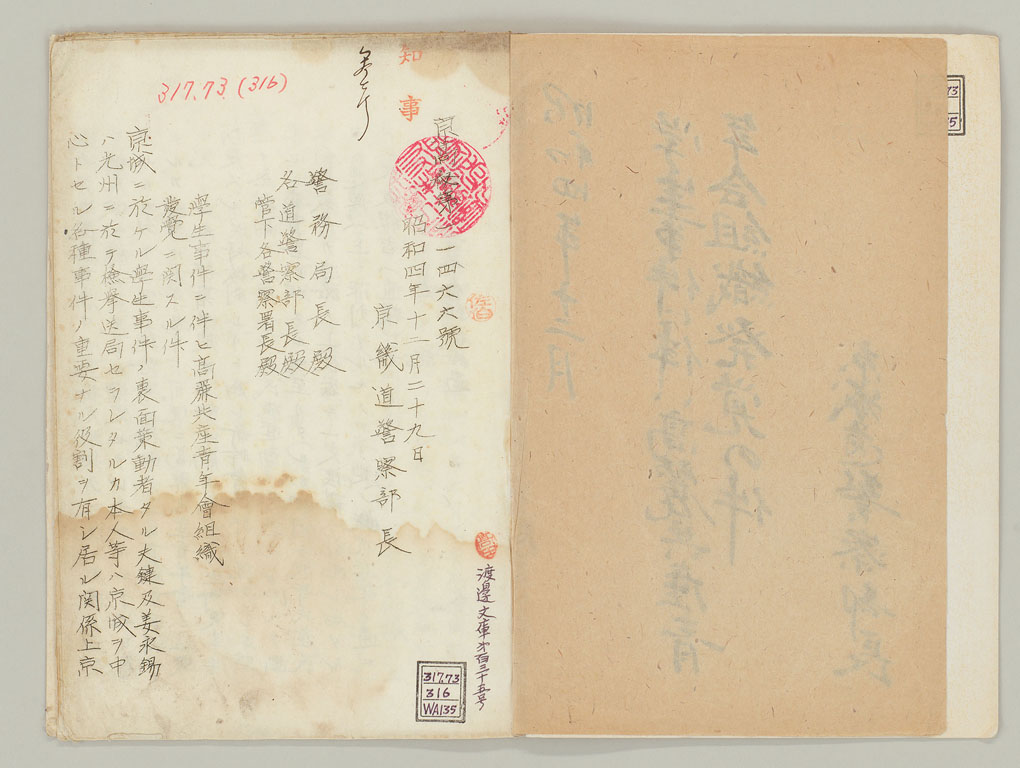 317.73 (316)
知事
京高秘第一一四六六號
昭和四年十二月二十九日
京畿道警察部長
警務局長殿
各道警察部長殿
管下各警察署長殿
學生事件ニ伴ヒ高麗共産青年會組織
發覺ニ関スル件
京城ニ於ケル學生事件ノ裏面策動者タル夫鍵及姜永錫
ハ光州ニ於テ検挙送局セラレタルカ本人等ハ京城ヲ中
心トセル各種事件ノ重要ナル役割ヲ有シ居ル関係上京
渡邊文庫第百三十五号
317.73
316
WA135
昭和四年十二月
學生事件ニ伴フ高麗共産青
年会組織発覚の件
京畿道警察部長
73
5